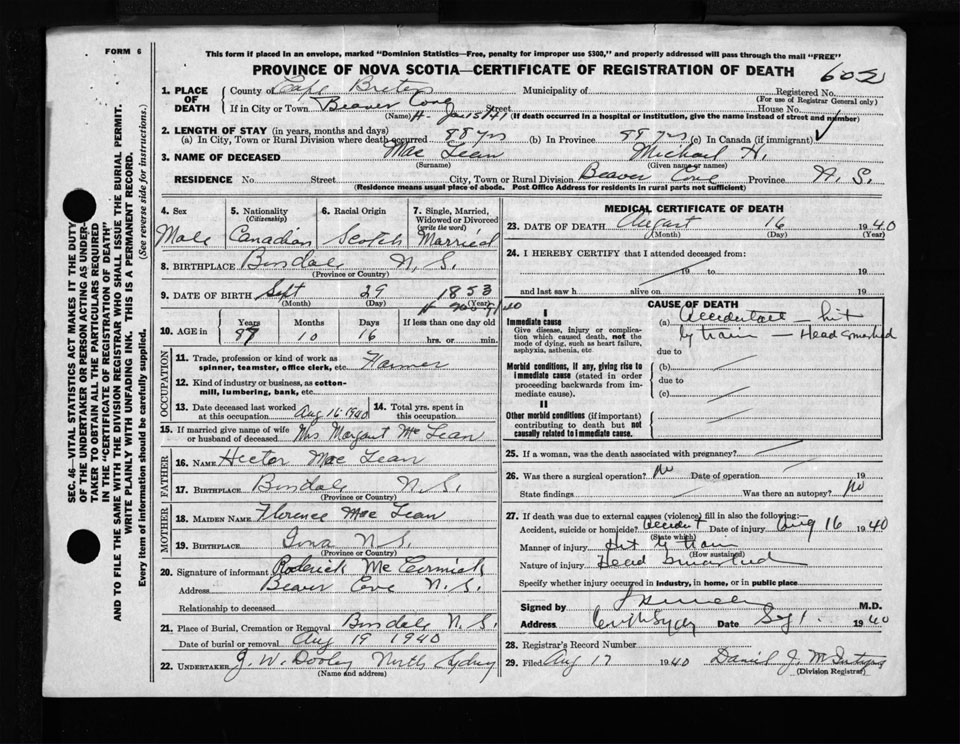 FORM 6
This form if placed in an envelope, marked "Dominion Statistics—Free, penalty for improper use $300," and properly addressed will pass through the mail "FREE"
PROVINCE OF NOVA SCOTIA—CERTIFICATE OF REGISTRATION OF DEATH 602
SEC. 46—VITAL STATISTICS ACT MAKES IT THE DUTY OF THE UNDERTAKER OR PERSON ACTING AS UNDERTAKER TO OBTAIN ALL THE PARTICULARS REQUIRED IN THE "CERTIFICATE OF REGISTRATION OF DEATH" AND TO FILE THE SAME WITH THE DIVISION REGISTRAR WHO SHALL ISSUE THE BURIAL PERMIT.
WRITE PLAINLY WITH UNFADING INK. THIS IS A PERMANENT RECORD.
Every item of information should be carefully supplied. (See reverse side for instructions.)
1. PLACE OF DEATH County of Cape Breton Municipality of Registered No.
(For use of Registrar General only)
If in City or Town Beaver Cove Street House No.
(Name) (If death occurred in a hospital or institution, give the name instead of street and number)
2. LENGTH OF STAY (in years, months and days)
(a) In City, Town or Rural Division where death occurred 88 yrs (b) In Province 88 yrs (c) In Canada (if immigrant)
3. NAME OF DECEASED Mac Lean Michael H.
(Surname) (Given name or names)
RESIDENCE No Street City, Town or Rural Division Beaver Cove Province N. S.
(Residence means usual place of abode. Post Office Address for residents in rural parts not sufficient)
4. Sex 5. Nationality (Citizenship) 6. Racial Origin 7. Single, Married, Widowed or Divorced (write the word)
Male Canadian Scotch Married
8. BIRTHPLACE N. S.
(Province or Country)
9. DATE OF BIRTH Sept 29 1853
(Month) (Day) (Year)
10. AGE in Years Months Days If less than one day old
10 16 hrs. or min.
OCCUPATION
11. Trade, profession or kind of work as spinner, teamster, office clerk, etc. Farmer
12. Kind of industry or business, as cotton-mill, lumbering, bank, etc.
13. Date deceased last worked at this occupation Aug 16 1940 14. Total yrs. spent in this occupation
15. If married give name of wife or husband of deceased Mrs Margaret McLean
FATHER
16. NAME Hector Mac Lean
17. BIRTHPLACE N. S.
(Province or Country)
MOTHER
18. MAIDEN NAME Florence Mac Lean
19. BIRTHPLACE Iona N. S.
(Province or Country)
20. Signature of informant Roderick McCormick
Address Beaver Cove N. S.
Relationship to deceased
21. Place of Burial, Cremation or Removal N. S.
Date of burial or removal Aug 19 1940
22. UNDERTAKER J. W. Dooley North Sydney
(Name and address)
MEDICAL CERTIFICATE OF DEATH
23. DATE OF DEATH August 16 1940
(Month) (Day) (Year)
24. I HEREBY CERTIFY that I attended deceased from:
19 to 19
and last saw h alive on 19
CAUSE OF DEATH
I
Immediate cause
Give disease, injury or complication which caused death, not the mode of dying, such as heart failure, asphyxia, asthenia, etc.
(a) Accidental — hit
by train — Head smashed
due to
Morbid conditions, if any, giving rise to immediate cause (stated in order proceeding backwards from immediate cause).
(b)
due to
(c)
II
Other morbid conditions (if important) contributing to death but not causally related to immediate cause.
25. If a woman, was the death associated with pregnancy?
26. Was there a surgical operation? No Date of operation 19
State findings Was there an autopsy? No
27. If death was due to external causes (violence) fill in also the following:—
Accident, suicide or homicide? Accident Date of injury Aug 16 1940
(State which)
Manner of injury Hit by train
(How sustained)
Nature of injury Head smashed
Specify whether injury occurred in industry, in home, or in public place
Signed by M.D.
Address Date 1940
28. Registrar's Record Number
29. Filed Aug 17 1940 Daniel J.
(Division Registrar)